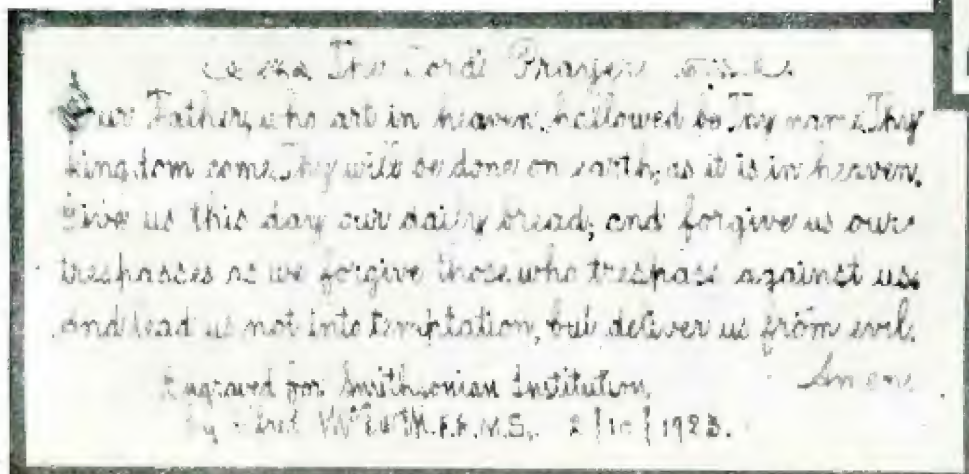 The Lord's Prayer
Our Father, who art in heaven, hallowed be Thy name, Thy
kingdom come, Thy will be done on earth, as it is in heaven.
Give us this day our daily bread; and forgive us our
trespasses as we forgive those who trespass against us.
And lead us not into temptation, but deliver us from evil.
Amen
Engraved for Smithsonian Institution,
By 2/10/1923.